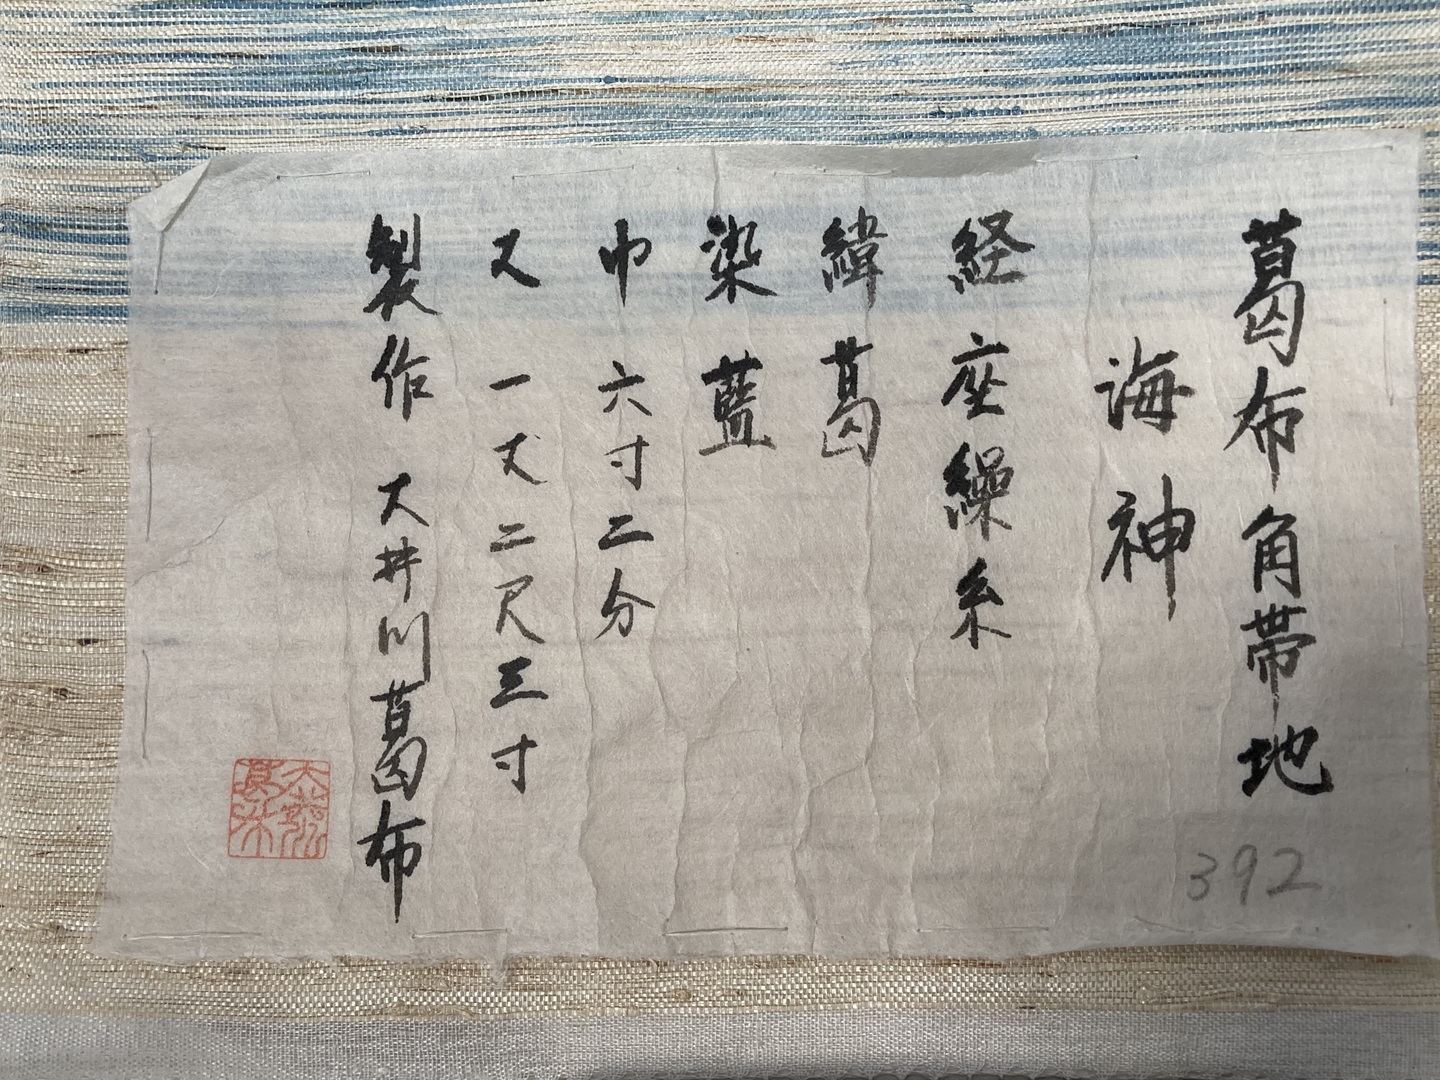 葛布角帯地
海神
経 座繰糸
緯 葛
染 藍
巾 六寸二分
丈 一丈二尺三寸
製作 大井川葛布
392